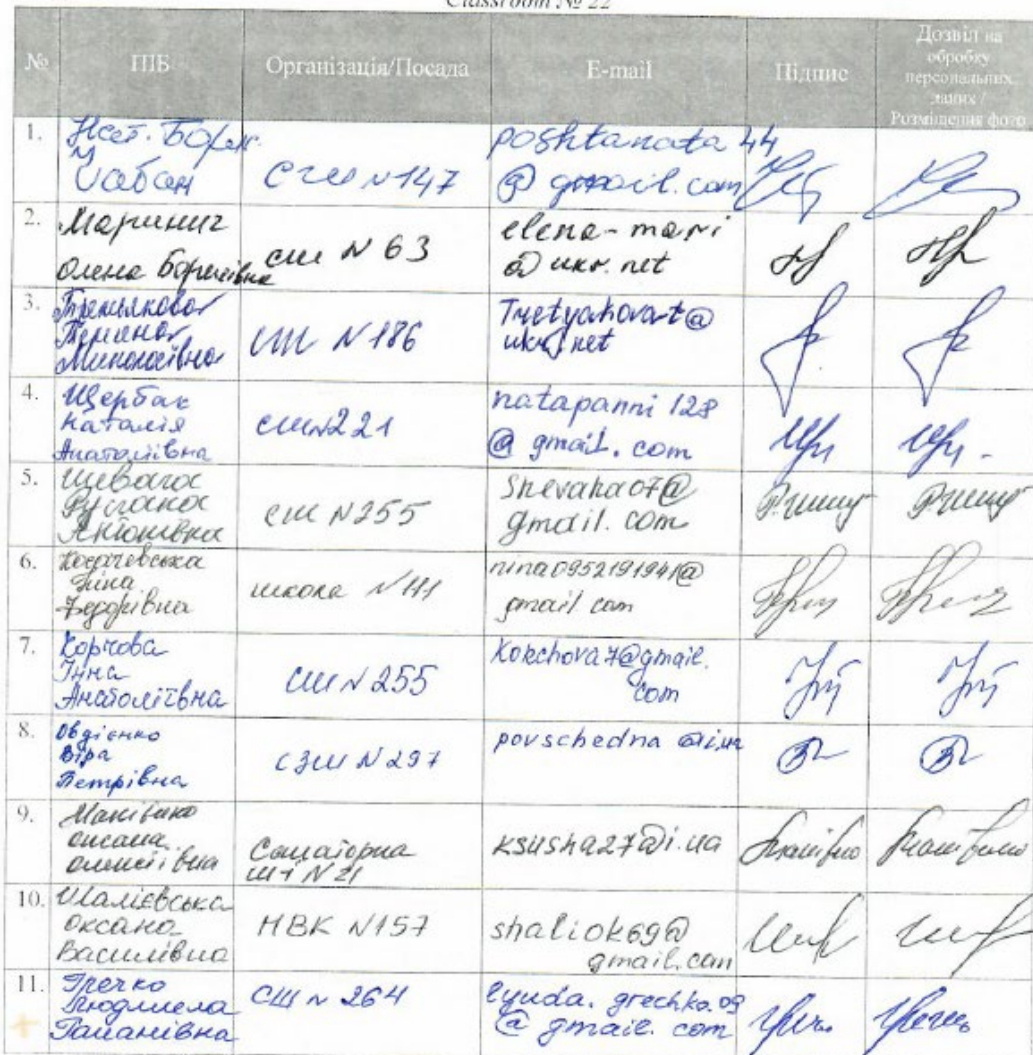 Classroom № 22
№ ПІБ Організація/Посада E-mail Підпис Дозвіл на обробку персональних даних / Розміщення фото
1. Чабан СЗШ N147 poshtanata 44
@ gmail.com
2. Маринич
Олена Борисівна сш N 63 elena-mari
@ ukr.net
3. Третьякова
Тетяна
Миколаївна СШ N 186 Tretyakovat@
ukr.net
4. Щербак
Наталія
Анатоліївна сш N 221 natapanni 128
@ gmail.com
5. Шевага
Руслана
Антонівна сш N255 Shevaha07@
gmail.com
6. Косачевська
Ніна
Федорівна школа N 141 nina0952191941@
gmail com
7. Корчова
Інна
Анатоліївна СШ N 255 Korchova7@gmail.
com
8. Овдієнко
Віра
Петрівна СЗШ N 297 povschedna @i.ua
9. Оксана
Олексіївна Санаторна
N 21 ksusha27@i.ua
10. Шалієвська
Оксана
Василівна НВК N157 shaliok69@
gmail.com
11. Гречко
Людмила
СШ N 264 lyuda.grechka.09
@ gmail.com